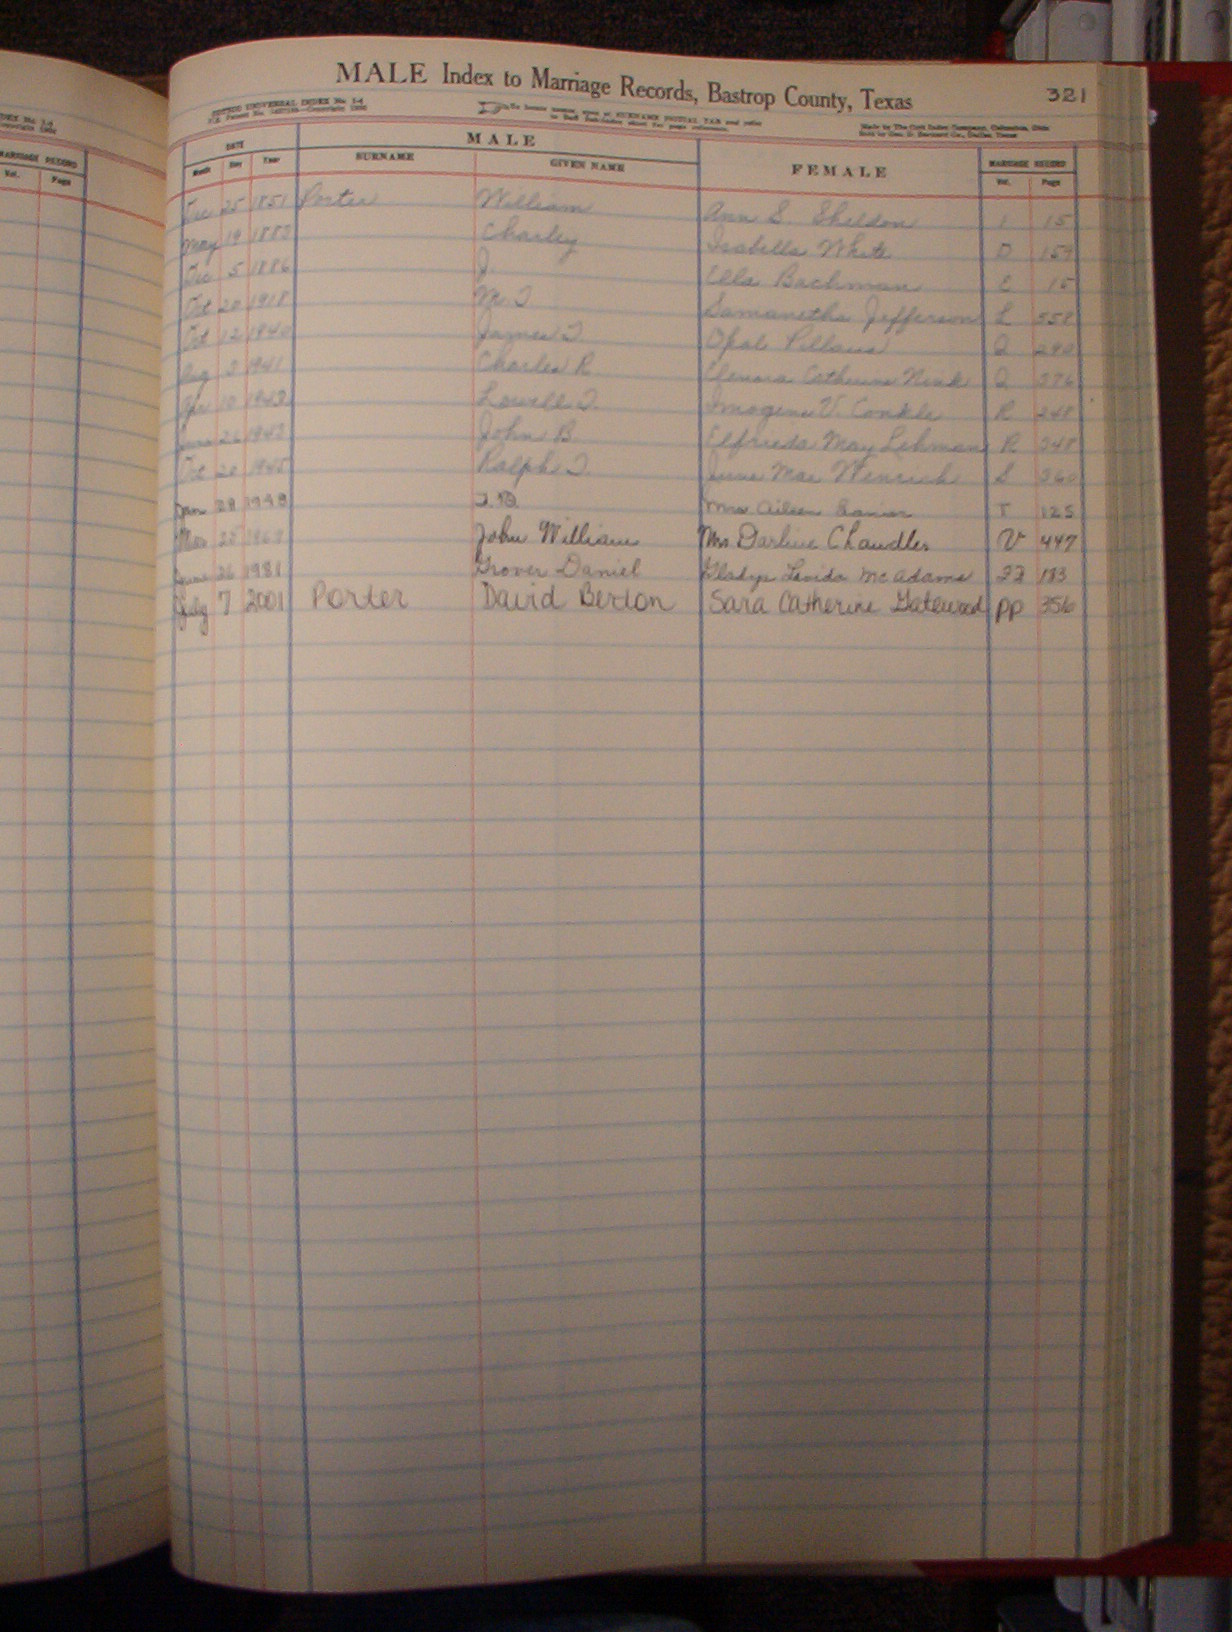 MALE Index to Marriage Records, Bastrop County, Texas 321
MALE
DATE SURNAME GIVEN NAME FEMALE MARRIAGE RECORD
Month Day Year Vol. Page
MARRIAGE RECORD
Vol. Page
Dec 25 1851 Porter William Ann S. Sheldon 1 15
May 19 Charley Isabella White D 159
Dec 5 1886 J. Ella Bachman E 15
Oct 20 1918 M. T. Samanetha Jefferson L 558
Oct 12 1940 James T. Opal Q 290
Aug 3 1941 Charles R. Elenora Catherine Q 376
Apr 10 1943 Lowell T. Imogene V. Conkle R 248
June 26 1943 John B. Elfrieda May Lehman R 348
Oct 20 1945 Ralph T. Mae Wenrich S 360
Jan 28 1949 T.B. Mrs. Aileen T 125
25 John William Mrs. Darline Chandler V 447
June 26 1981 Grover Daniel Gladys Mc Adams 183
July 7 2001 Porter David Berton Sara Catherine Gatewood PP 356